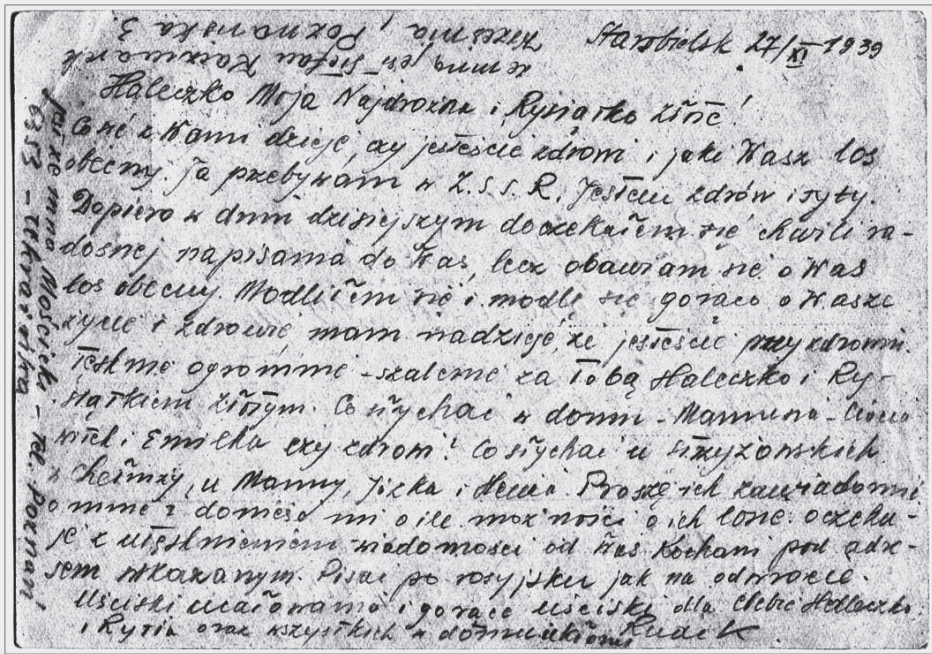 Starobielsk 27/XI 1939
ze mną jest Stefan Kaczmarek
Września, Poznańska 3.
Haleczko Moja Najdroższa i Rysiątko złote!
Co się z Wami dzieje, czy jesteście zdrowi i jaki Wasz los
obecny. Ja przebywam w Z.S.S.R. Jestem zdrów i syty.
Dopiero w dniu dzisiejszym doczekałem się chwili ra-
dosnej napisania do Was, lecz obawiam się o Was
los obecny. Modliłem się i modlę się gorąco o Wasze
życie i zdrowie mam nadzieję, że jesteście przy zdrowiu.
Tęsknię ogromnie - szalenie za Tobą Haleczko i Ry-
siątkiem złotym. Co słychać w domu - Mamusia -
i Emilka czy zdrowi? Co słychać u Strzyżowskich
z Chełmży, u Mamy, i Henia. Proszę ich zawiadomić
o mnie i donieść mi o ile możności o ich losie. Oczeku-
ję z utęsknieniem wiadomości od Was Kochani pod adre-
sem wskazanym. Pisać po rosyjsku jak na odwrocie.
Uściski ucałowania i gorące uściski dla Ciebie Haleczko
i Rysia oraz wszystkich w domu Rudek
jest ze mną Mościcki - pow. Poznań
6353 -